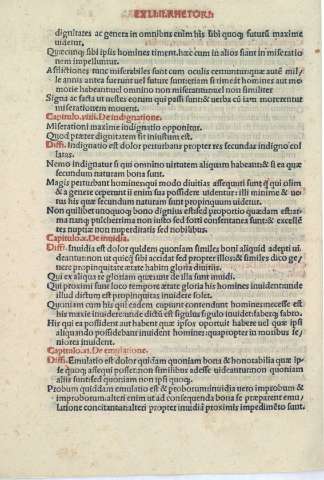 EX LI.II.RHETORI.
dignitates ac genera in omnibus enim his sibi quoq; futurū maxime
uidetur.
Quæcunq; sibi ipsis homines timent. hæc cum in alios fiant in miseratio
nem impelluntur.
Afflictiones tunc miserabiles sunt cum oculis cernuntur quæ aute mil/
le annis antea fuerunt uel future sunt etiam si timeāt homines aut me
morie habeant uel omnino non miserantur uel non similiter
Signa ac facta ut uestes eorum qui passi sunt & uerba cū iam morerentur
miserationem mouent.
Capitulo.viiii. De indignatione.
Miserationi maxime indignatio opponitur.
Quod præter dignitatem fit iniustum est.
Diffi. Indignatio est dolor perturbans propter res secundas indigno col
latas.
Nemo indignatur si qui omnino uirtutem aliquam habeant & si ea quæ
secundum naturam bona sunt.
Magis perturbant homines qui modo diuitias assequuti sunt q̄ qui olim
& a genere ceperunt ii enim sua possidere uidentur: illi minime & ue
tus his quæ secundum naturam sunt propinquum uidetur.
Non quilibet unoquoq; bono dignus est sed proportio quædam est: ar
ma nanq; pulcherrima non iusto sed forti consentanea sunt: & excellē
tes nuptiæ non nuper ditatis sed nobilibus.
Capitulo.x. De inuidia.
Diffi. Inuidia est dolor quidem quoniam similes boni aliquid adepti ui
deantur non ut quicq̄ sibi accidat sed propter illos: & similes dico ge/
nere propinquitate ætate habitu gloria diuitiis.
Qui ex aliqua re gloriam querunt de illa sunt inuidi.
Qui proximi sunt loco tempore ætate gloria his homines inuident: unde
illud dictum est propinquitas inuidere solet.
Quoniam cum his qui eadem cupiunt contendunt homines: necesse est
his maxie inuidere unde dictū est figulus figulo inuidet: faber q; fabro.
His qui ea possident aut habent quæ ipsos oportuit habere uel quæ ipsi
aliquando possidebant inuident homines: quapropter in moribus se/
niores inuident.
Capitulo.xi. De emulatione.
Diffi. Emulatio est dolor quidam quoniam bona & honotabilia quæ ip/
se quoq; assequi posset: non similibus adesse uideantur: non quoniam
aliis sunt sed quoniam non ipsi quoq;.
Probum quiddam emulatio est & proborum: inuidia uero improbum &
improborum: alteri enim ut ad consequenda bona se præparent emu/
latione concitantur: alteri propter inuidiā proximis impedimēto sunt.